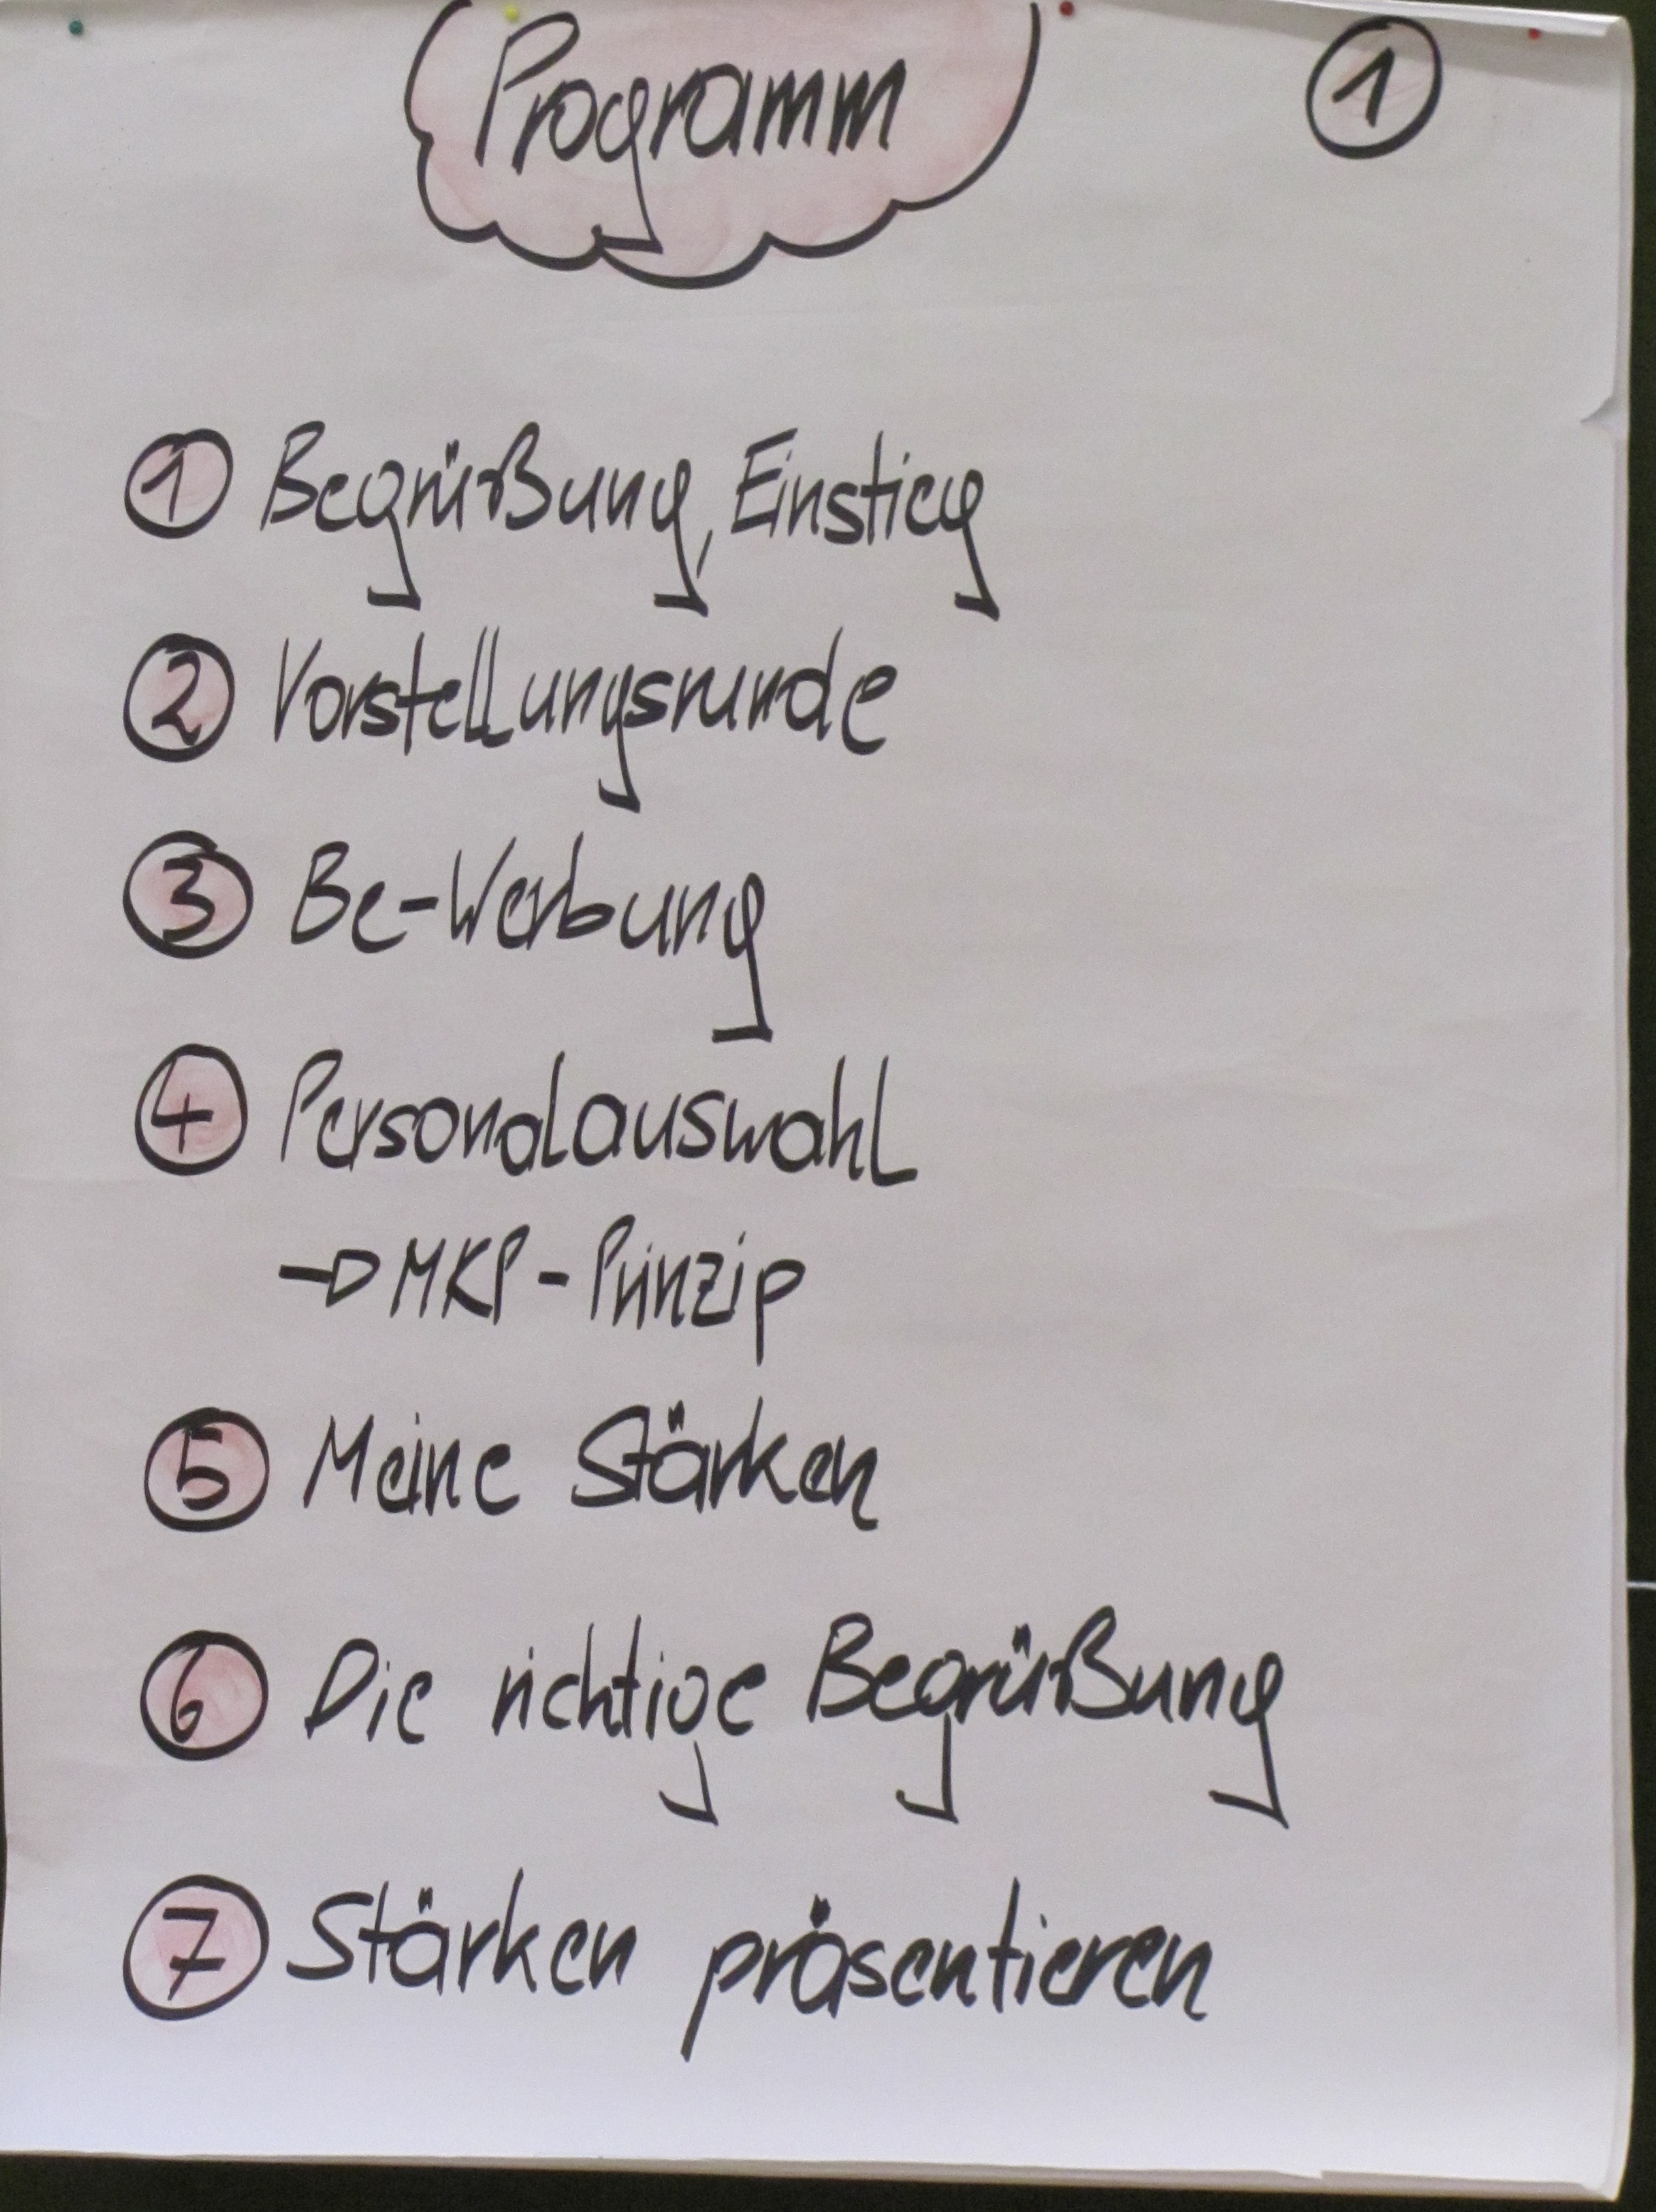 Programm
1
1 Begrüßung, Einstieg
2 Vorstellungsrunde
3 Be-Werbung
4 Personalauswahl
→ MKP-Prinzip
5 Meine Stärken
6 Die richtige Begrüßung
7 Stärken präsentieren